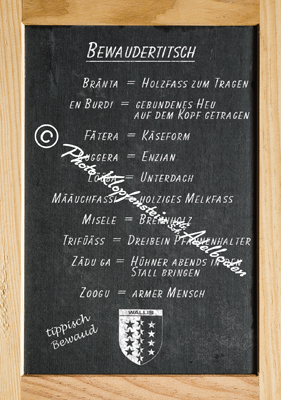 BEWAUDERTITSCH
BRÄNTA = HOLZFASS ZUM TRAGEN
EN BURDI = GEBUNDENES HEU
AUF DEM KOPF GETRAGEN
FÄTERA = KÄSEFORM
= ENZIAN
= UNTERDACH
MÄÄUCHFASS = HOLZIGES MELKFASS
MISELE = BRENNHOLZ
TRIFÜÄSS = DREIBEIN PFANNENHALTER
ZÄDU GA = HÜHNER ABENDS IN
STALL BRINGEN
ZOOGU = ARMER MENSCH
tippisch
Bewaud
WALLIS
© Photo Klopfenstein Adelboden